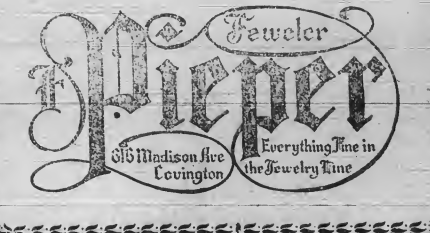 Jeweler
F. Pieper
616 Madison Ave
Covington
Everything Fine in
the Jewelry Line